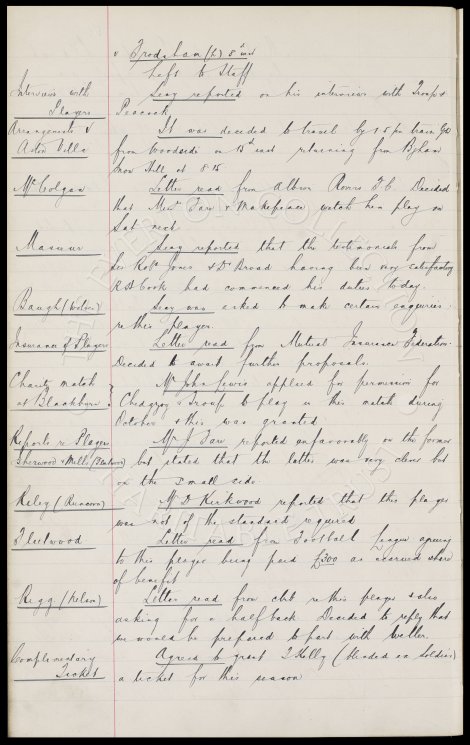 v Frodsham (h) 8th inst
Left to Staff
Interviews with Players
Secy reported on his interviews with Troup &
Peacock
Arrangements v Aston Villa
It was decided to travel by 1.5 pm train
from Woodside on 15th inst returning from B'ham
Snow Hill at 8.15
McColgan
Letter read from Albion Rovers F.C. Decided
that Messrs Fare & Makepeace watch him play on
Sat next
Masseur
Secy reported that the testimonials from
Sir Robt Jones & Dr Broad having been very satisfactory
R H Cook had commenced his duties today.
Baugh (Wolves)
Secy was asked to make certain enquiries
re this player.
Insurance of Players
Letter read from Mutual Insurance Federation.
Decided to await further proposals.
Charity match at Blackburn
Mr John Lewis applied for permission for
Chedgzoy & Troup to play in this match during
October & this was granted
Reports re Players Sherwood & Mills
Mr J. Fare reported unfavorably on the former
but stated that the latter was very clever but
on the small side.
Riley (Runcorn)
Mr D. Kirkwood reported that this player
was not of the standard required
Fleetwood
Letter read from Football League agreeing
to this player being paid £300 as accrued share
of benefit
Rigg (Nelson)
Letter read from club re this player & also
asking for a half back. Decided to reply that
we would be prepared to part with Weller.
Complimentary Ticket
Agreed to grant T Kelly (blinded ex Soldier)
a ticket for this season